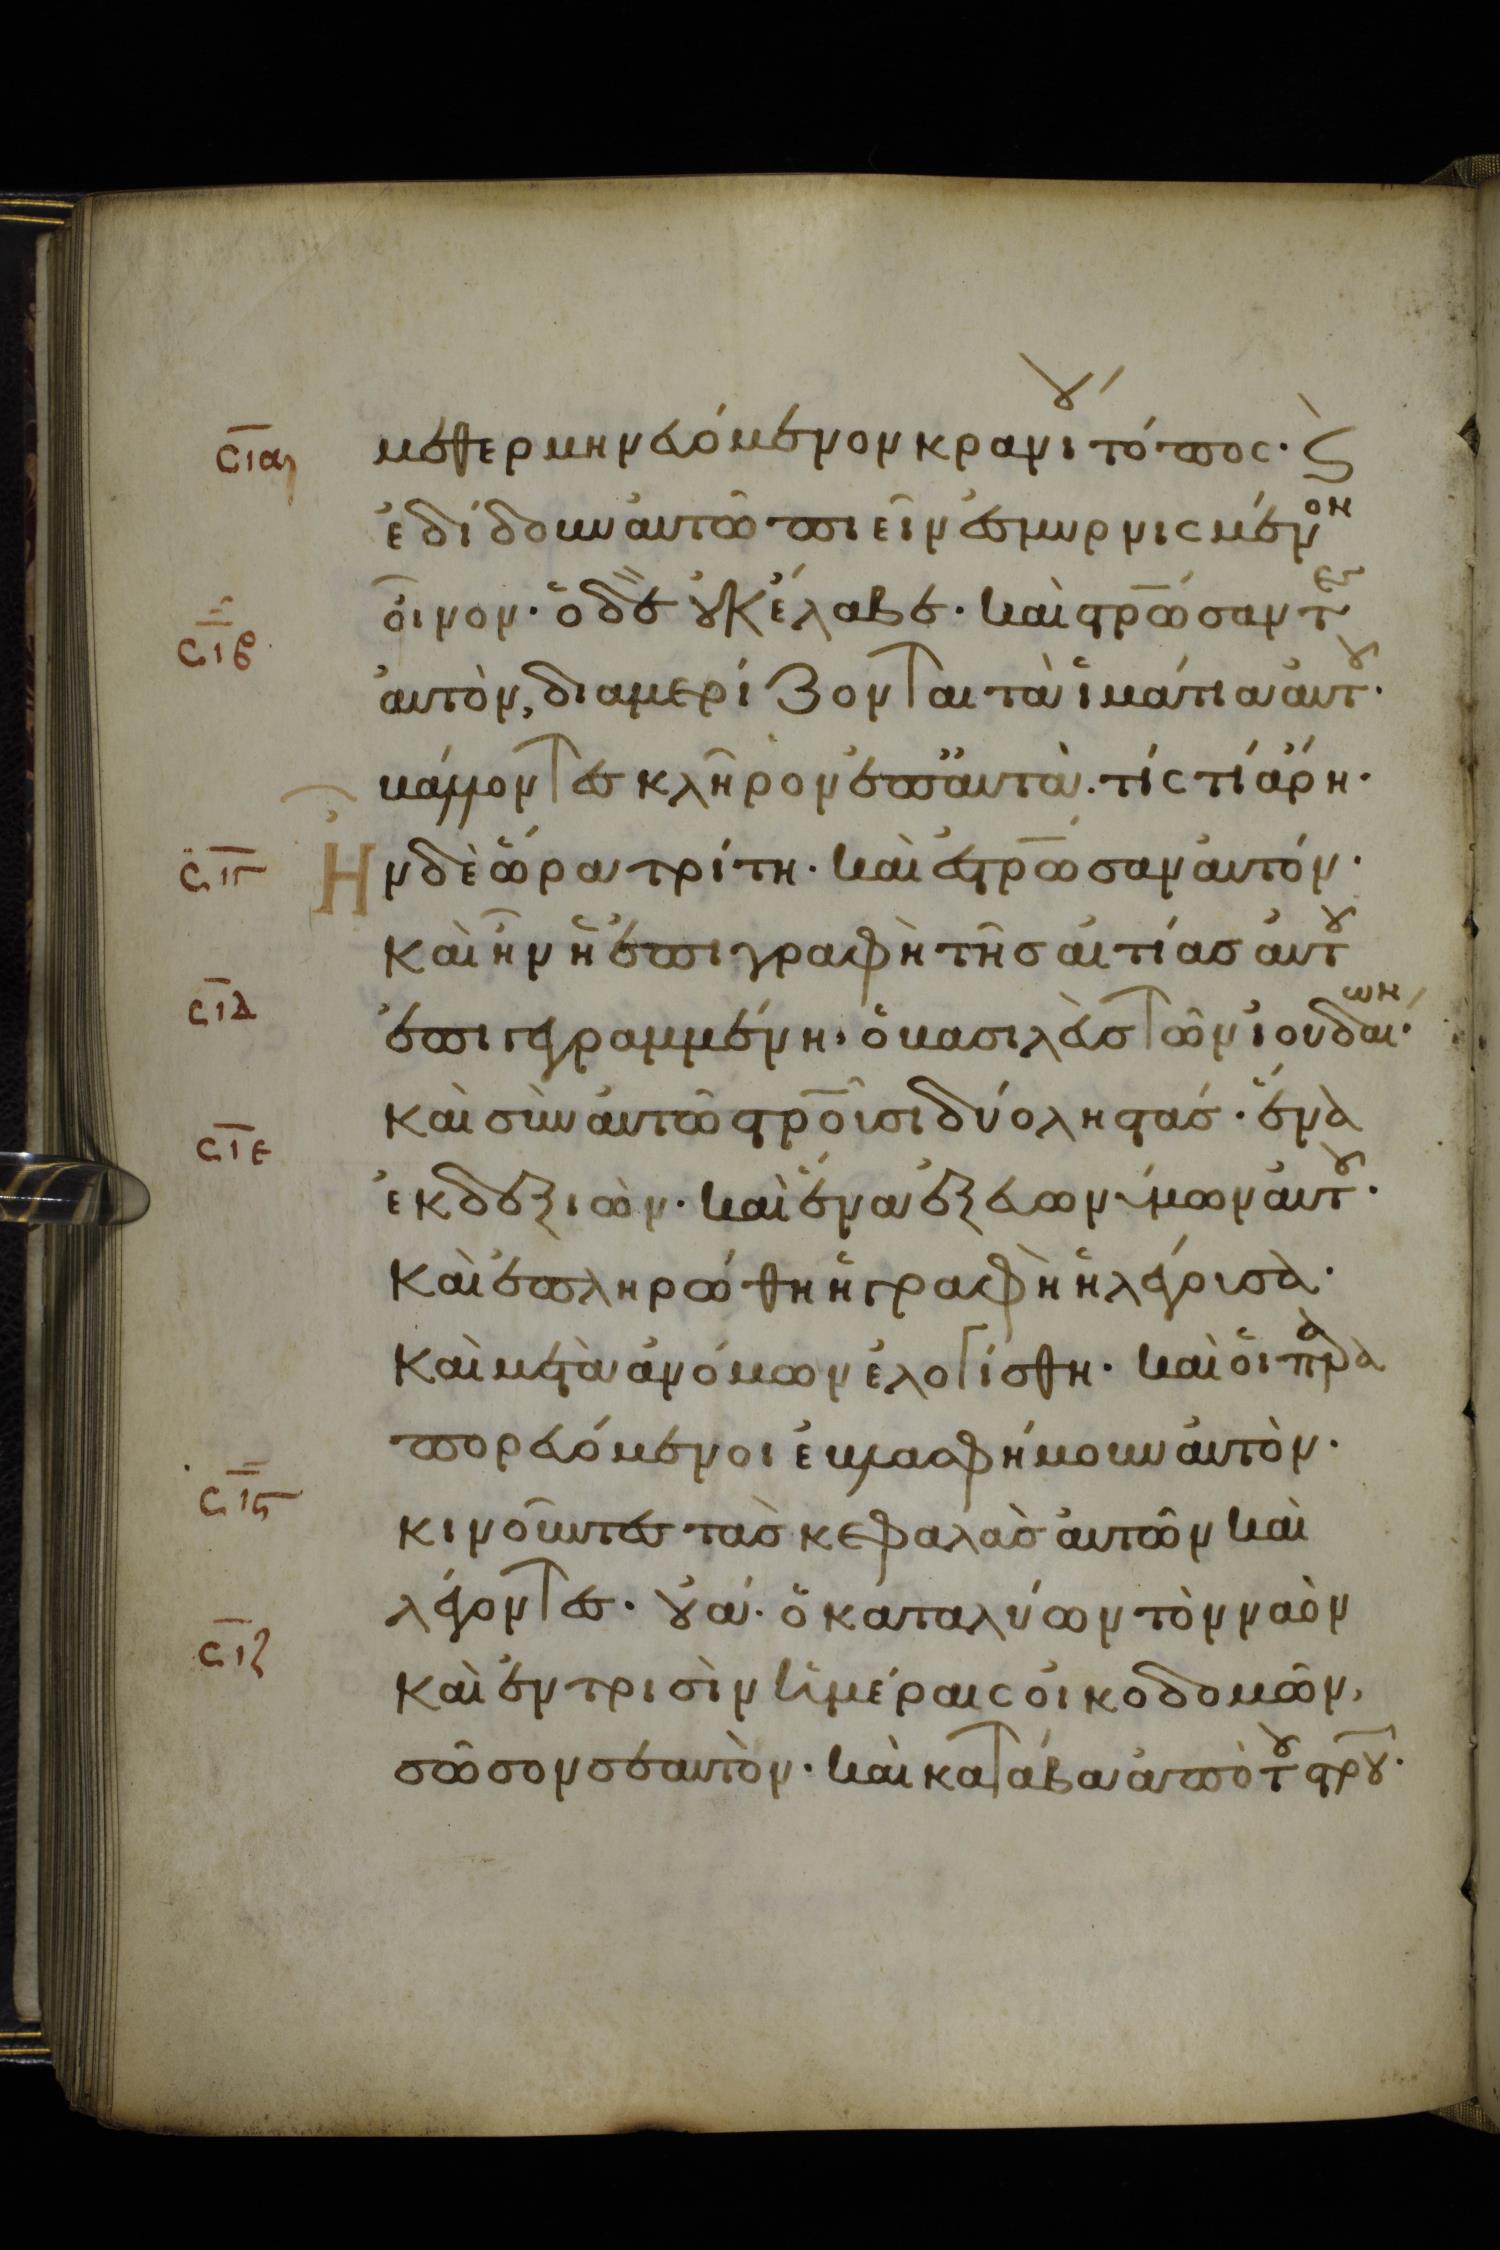 σια μεθερμηνευόμενον κρανίου τόπος· Ϛ̀
ἐδίδουν αὐτῶ πιεῖν ἐσμυρνισμένον
σιβ οἶνον· ὁ δὲ οὐκ ἔλαβε· καὶ στρω̅σαντες
αὐτὸν, διαμερίζονται τὰ ἱμάτια αὐτοῦ·
βάλλοντες κλῆρον ἐπ αὐτὰ· τίς τί ἄρη·
σιγ Ἦν δὲ ὥρα τρίτη· καὶ ἐστρω̅σαν αὐτόν·
καὶ ἦν ἡ ἐπιγραφὴ τῆς αἰτίας αὐτοῦ
σιδ ἐπιγεγραμμένη· ὁ βασιλεὺς τῶν ἰουδαίων·
καὶ σὺν αὐτῶ στρο̅ῖσι δύο ληστάς· ἕνα
σιε ἐκ δεξιῶν· καὶ ἕνα ἐξ εὐωνύμων αὐτοῦ·
καὶ ἐπληρώθη ἡ γραφὴ ἡ λέγουσα·
καὶ μετὰ ἀνόμων ἐλογίσθη· καὶ οἱ παρα
πορευόμενοι ἐβλασφήμουν αὐτὸν·
σιϛ κινοῦντες τὰς κεφαλὰς αὐτῶν καὶ
λέγοντες· οὐά· ὁ καταλύων τὸν ναὸν
σιζ καὶ ἐν τρισὶν ἡμέραις οἰκοδομῶν,
σῶσον σεαυτὸν· καὶ κατάβα ἀπὸ τοῦ στρ̅ου·